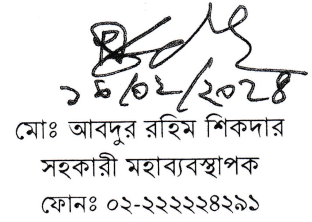 ১৪/০২/২০২৪
মোঃ আবদুর রহিম শিকদার
সহকারী মহাব্যবস্থাপক
ফোনঃ ০২-২২২২২৪২৯১